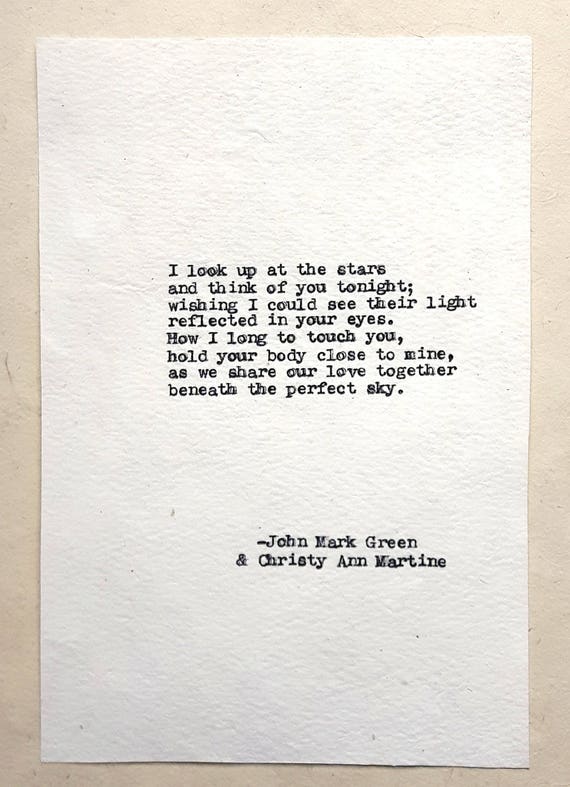 I look up at the stars
and think of you tonight;
wishing I could see their light
reflected in your eyes.
How I long to touch you,
hold your body close to mine,
as we share our love together
beneath the perfect sky.
-John Mark Green
& Christy Ann Martine